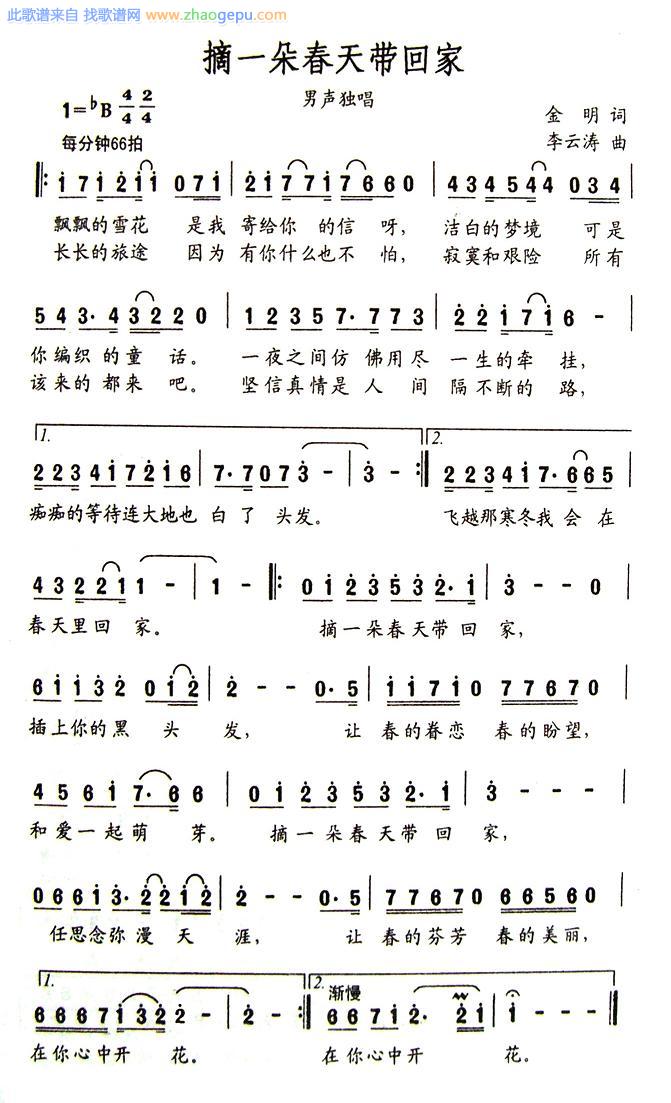 此歌谱来自 找歌谱网 www.zhaogepu.com
摘一朵春天带回家
1=♭B 4/4 2/4
男声独唱
金 明 词
每分钟66拍
李云涛 曲
飘飘的雪花 是我 寄给你 的信 呀, 洁白的梦境 可是
长长的旅途 因为 有你什么也不 怕, 寂寞和艰险 所有
你编织 的童 话。 一夜之间仿 佛用尽 一生的牵 挂,
该来的 都来 吧。 坚信真情是 人 间 隔不断的 路,
1. 2.
痴痴的等待连大地也 白 了 头发。 飞越那寒冬我 会 在
春天里回 家。 摘一朵春天带 回 家,
插上你的黑 头 发, 让 春的眷恋 春的盼望,
和爱一起萌 芽。 摘一朵春天带 回 家,
任思念弥漫天 涯, 让 春的芬芳 春的美丽,
1. 2. 渐慢
在你心中开 花。 在你心中开 花。